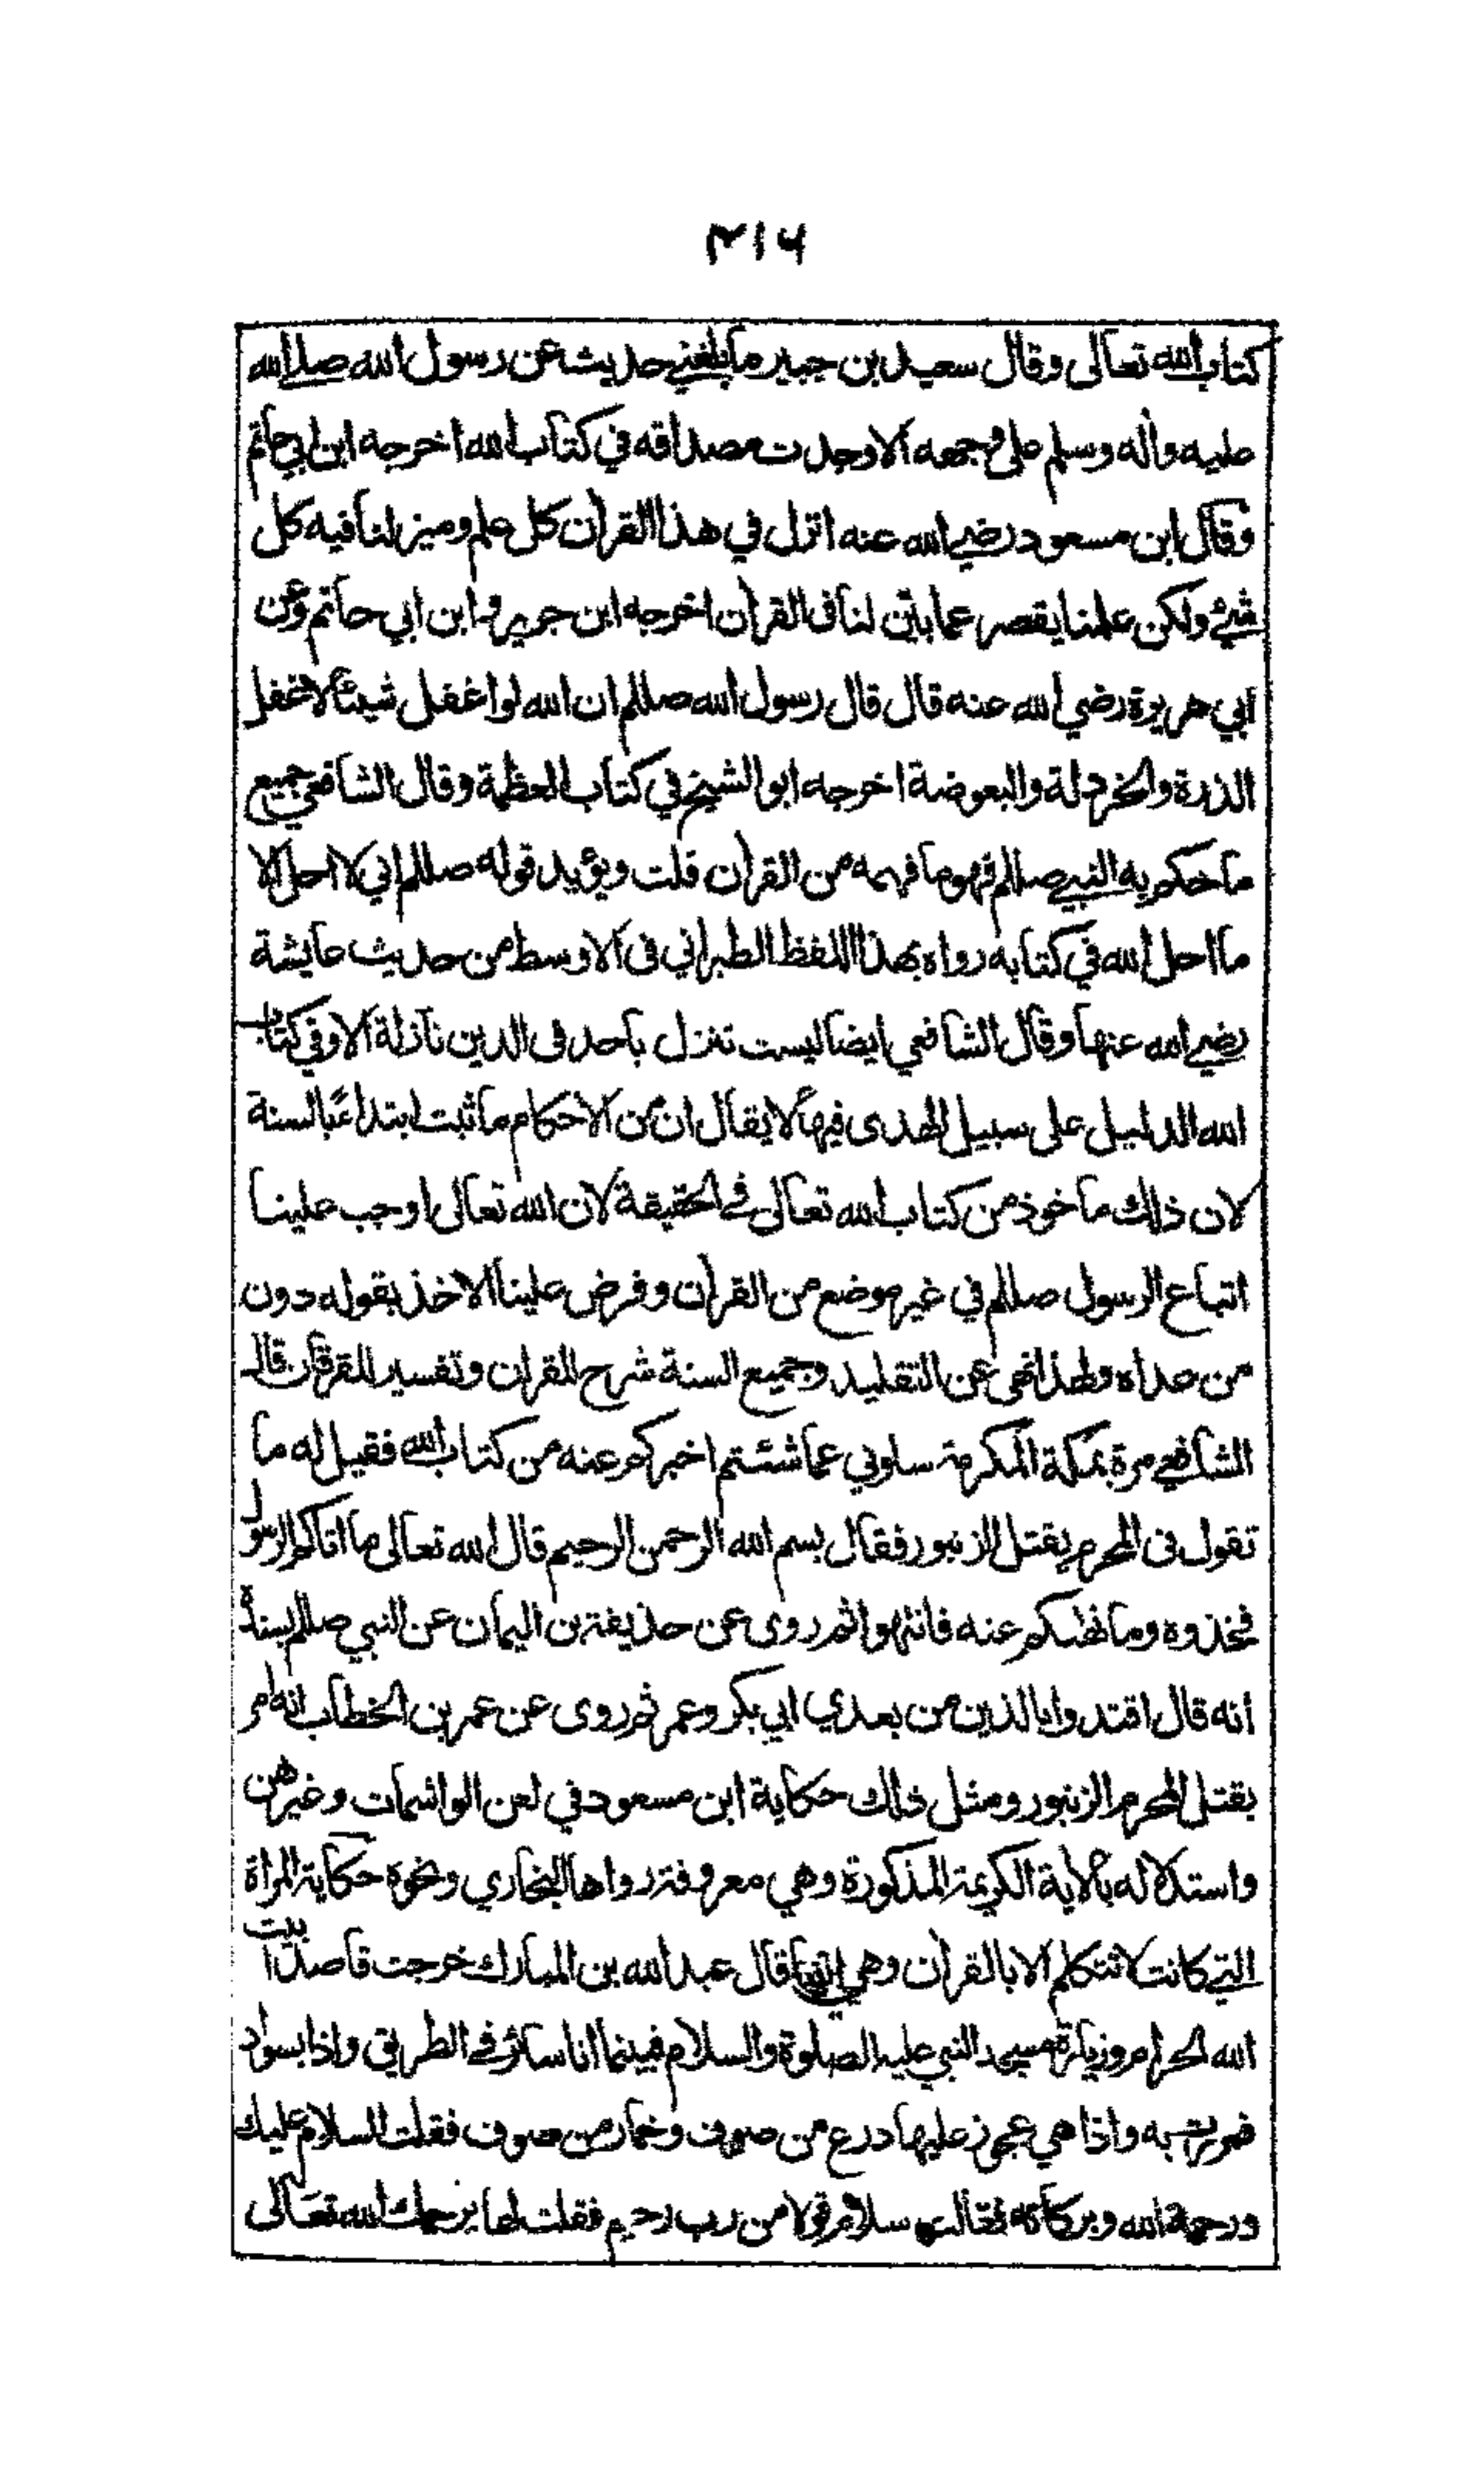 ٣١٦
كتاب الله تعالى وقال سعيد بن جبير ما بلغني حديث عن رسول الله صلى الله
عليه واله وسلم على وجهه الا وجدت مصداقه في كتاب الله اخرجه ابن ابي حاتم
وقال ابن مسعود رضي الله عنه انزل في هذا القرآن كل علم وميز لنا فيه كل
شيئ ولكن علمنا يقصر عما بين لنا في القرآن اخرجه ابن جرير وابن ابي حاتم وعن
ابي هريرة رضي الله عنه قال قال رسول الله صللم ان الله لو اغفل شيئا لاغفل
الذرة والخردلة والبعوضة اخرجه ابو الشيخ في كتاب العظمة وقال الشافعي جميع
ما حكم به النبي صللم فهو ما فهمه من القرآن قلت ويؤيد قوله صللم اني لا احل الا
ما احل الله في كتابه رواه بهذا اللفظ الطبراني في الاوسط من حديث عايشة
رضي الله عنها وقال الشافعي ايضا ليست تنزل باحد في الدين نازلة الا وفي كتاب
الله الدليل على سبيل الهدى فيها لا يقال ان من الاحكام ما ثبت ابتداء بالسنة
لان ذلك ماخوذ من كتاب الله تعالى في الحقيقة لان الله تعالى اوجب علينا
اتباع الرسول صللم في غير موضع من القرآن وفرض علينا الاخذ بقوله دون
من عداه ولهذا نهى عن التقليد وجميع السنة شرح للقران وتفسير للفرقان قال
الشافعي مرة بمكة المكرمة سلوني عما شئتم اخبركم عنه من كتاب الله فقيل له ما
تقول في المحرم يقتل الزنبور فقال بسم الله الرحمن الرحيم قال الله تعالى ما اتاكم الرسول
فخذوه وما نهىكم عنه فانتهوا ثم روى عن حذيفة بن اليمان عن النبي صللم بسنده
انه قال اقتدوا بالذين من بعدي ابي بكر وعمر ثم روى عن عمر بن الخطاب انه امر
بقتل المحرم الزنبور ومثل ذلك حكاية ابن مسعود في لعن الواشمات وغيرهن
واستدلاله بالاية الكريمة المذكورة وهي معروفة رواها البخاري ونحوه حكاية المراة
التي كانت لا تتكلم الا بالقرآن وهي انها قال عبد الله بن المبارك خرجت قاصدا بيت
الله الحرام وزيارة مسجد النبي عليه الصلوة والسلام فبينما انا سائر في الطريق واذا بسواد
فمررت به واذا هي عجوز عليها درع من صوف وخمار من صوف فقلت السلام عليك
ورحمة الله وبركاته فقالت سلام قولا من رب رحيم فقلت لها يرحمك الله تعالى